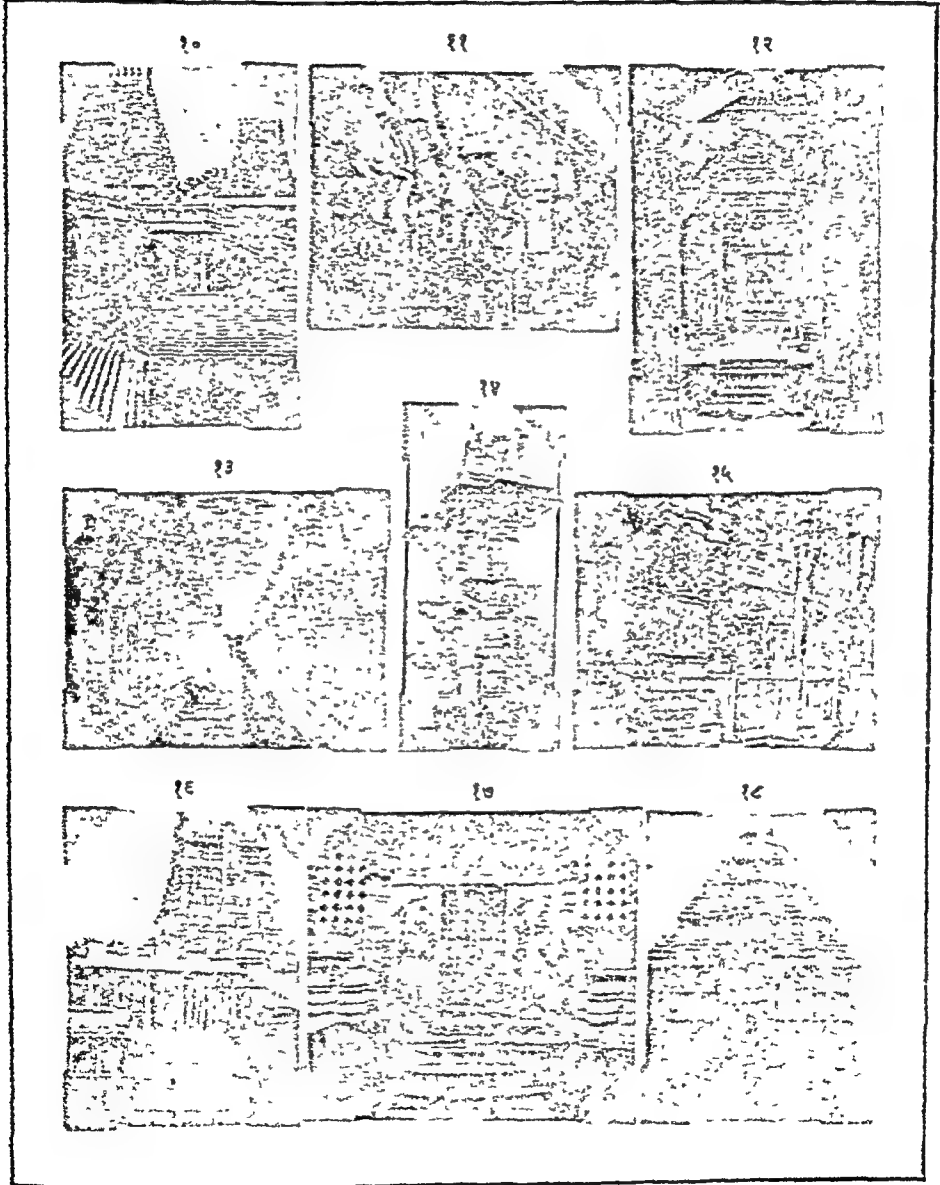 १० ११ १२
१३ १४ १५
१६ १७ १८